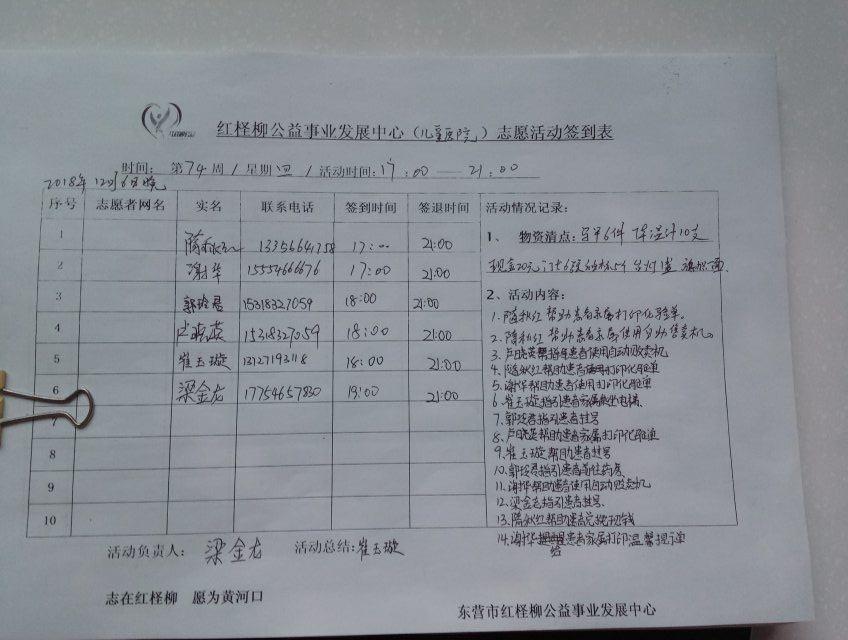 红柽柳公益事业发展中心（儿童医院）志愿活动签到表
时间：第74周/星期四/活动时间：17：00—21：00
2018年12月6日晚
序号 志愿者网名 实名 联系电话 签到时间 签退时间 活动情况记录：
1 隋秋红 13356641758 17:00 21:00
2 谢华 15554666676 17:00 21:00
3 郭玲君 15318327059 18:00 21:00
4 卢晓英 15318327059 18:00 21:00
5 崔玉璇 13127193118 18:00 21:00
6 梁金龙 17754657830 19:00 21:00
7
8
9
10
1、物资清点：马甲6件 体温计10支
现金20元
2、活动内容：
1.隋秋红帮助患者家属打印化验单。
2.隋秋红帮助患者家属使用自助售卖机。
3.卢晓英帮助患者使用自动贩卖机
4.隋秋红帮助患者使用打印化验单
5.谢华帮助患者使用打印化验单
6.崔玉璇指引患者家属乘坐电梯
7.郭玲君指引患者挂号
8.卢晓英帮助患者家属打印化验单
9.崔玉璇帮助患者挂号
10.郭玲君指引患者前往药房
11.谢华帮助患者使用自动贩卖机
12.梁金龙指引患者挂号
13.隋秋红帮助患者兑换零钱
14.谢华给患者家属打印温馨提示单
活动负责人：梁金龙 活动总结：崔玉璇
志在红柽柳 愿为黄河口
东营市红柽柳公益事业发展中心